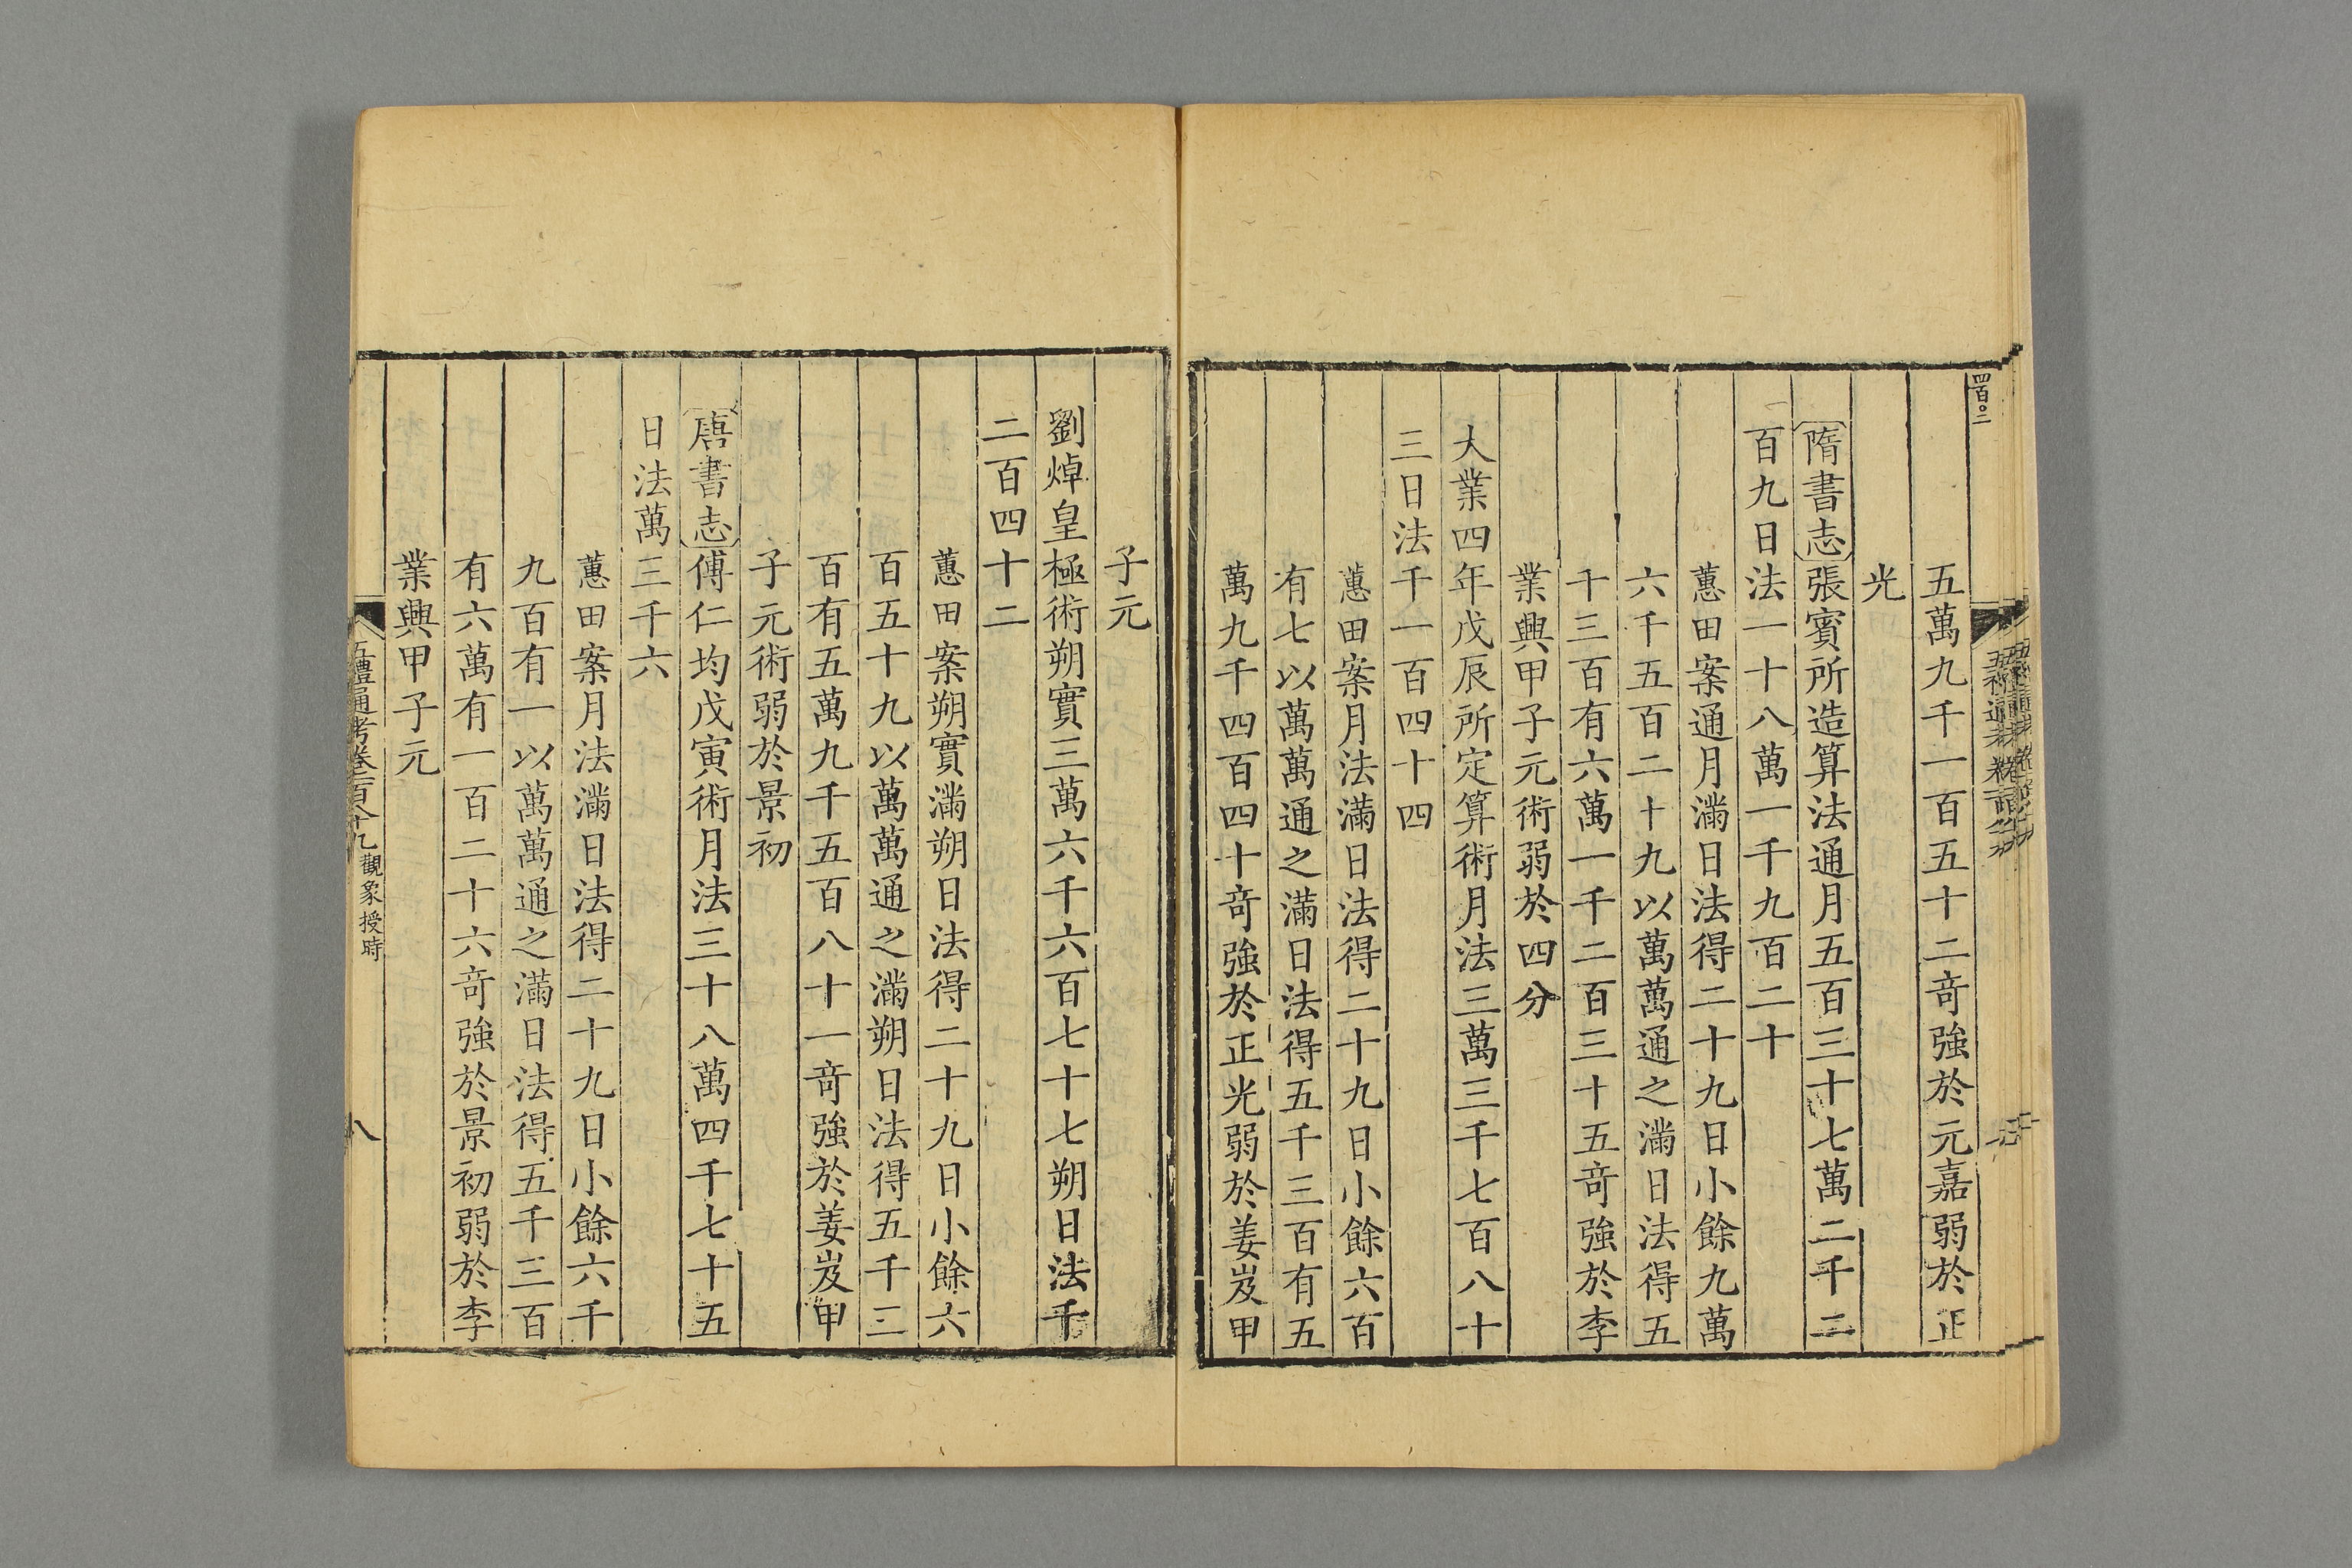 四百〇二
五萬九千一百五十二竒強於元嘉弱於正
光
隋書志張賓所造算法通月五百三十七萬二千二
百九日法一十八萬一千九百二十
蕙田案通月滿日法得二十九日小餘九萬
六千五百二十九以萬萬通之滿日法得五
千三百有六萬一千二百三十五竒強於李
業興甲子元術弱於四分
大業四年戊辰所定算術月法三萬三千七百八十
三日法千一百四十四
蕙田案月法滿日法得二十九日小餘六百
有七以萬萬通之滿日法得五千三百有五
萬九千四百四十竒強於正光弱於姜岌甲
子元
劉焯皇極術朔實三萬六千六百七十七朔日法千
二百四十二
蕙田案朔實滿朔日法得二十九日小餘六
百五十九以萬萬通之滿朔日法得五千三
百有五萬九千五百八十一竒強於姜岌甲
子元術弱於景初
唐書志傅仁均戊寅術月法三十八萬四千七十五
日法萬三千六
蕙田案月法滿日法得二十九日小餘六千
九百有一以萬萬通之滿日法得五千三百
有六萬有一百二十六竒強於景初弱於李
業興甲子元
五禮通考卷一百八十九 觀象授時 八